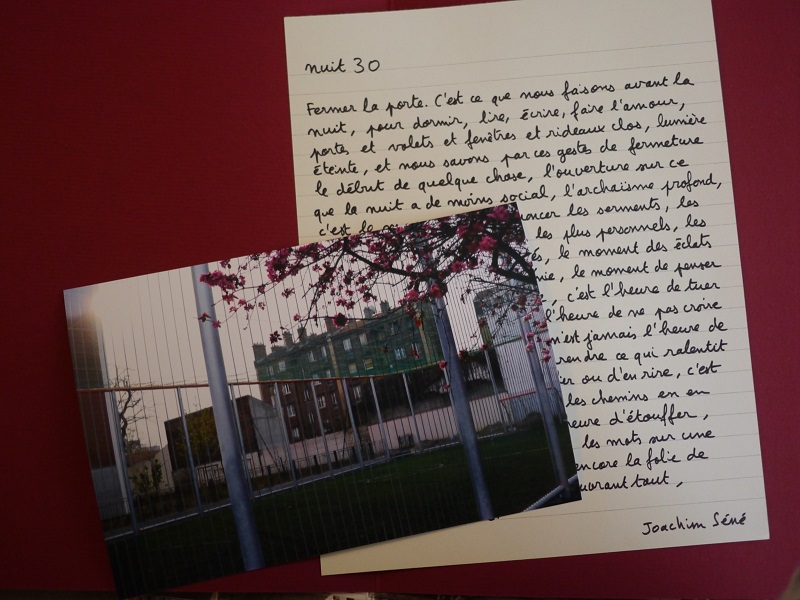 nuit 30
Fermer la porte. C'est ce que nous faisons avant la
nuit, pour dormir, lire, écrire, faire l'amour,
portes et volets et fenêtres et rideaux clos, lumière
éteinte, et nous savons par ces gestes de fermeture
le début de quelque chose, l'ouverture sur ce
que la nuit a de moins social, l'archaïsme profond,
c'est les serments, les
les plus personnels, les
le moment des éclats
le moment de penser
, c'est l'heure de tuer
l'heure de ne pas croire
n'est jamais l'heure de
rendre ce qui ralentit
ou d'en rire, c'est
les chemins en en
d'étouffer,
les mots sur une
encore la folie de
tout,
Joachim Séné